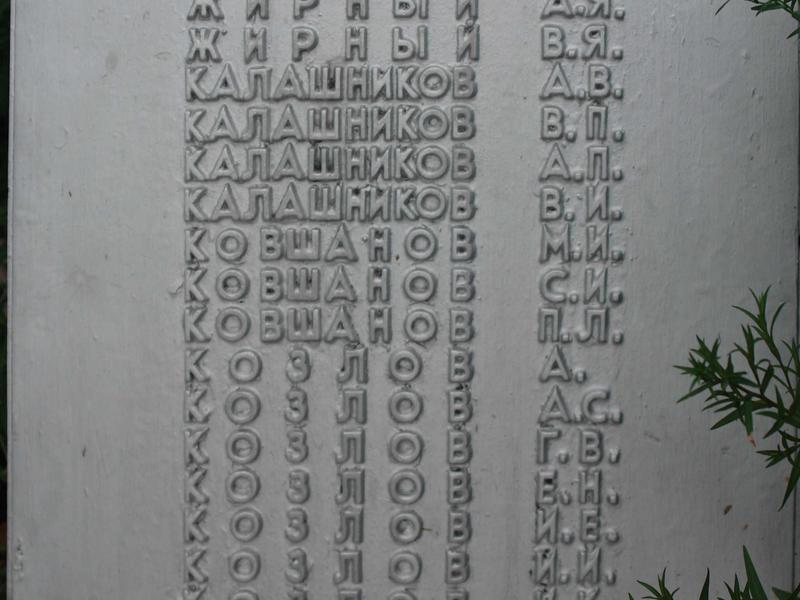 ЖИРНЫЙ А.Я.
ЖИРНЫЙ В.Я.
КАЛАШНИКОВ А.В.
КАЛАШНИКОВ В.П.
КАЛАШНИКОВ А.П.
КАЛАШНИКОВ В.И.
КОВШАНОВ М.И.
КОВШАНОВ С.И.
КОВШАНОВ П.Л.
КОЗЛОВ А.
КОЗЛОВ А.С.
КОЗЛОВ Г.В.
КОЗЛОВ Е.Н.
КОЗЛОВ И.Е.
КОЗЛОВ И.И.